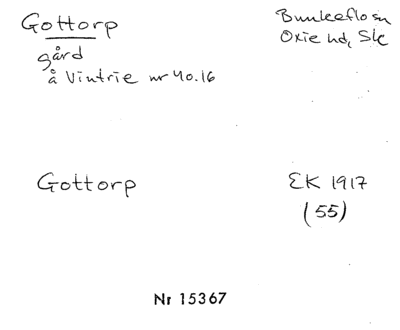 Gottorp
Bunkeflo sn
Oxie hd, Sk
gård
å Vintrie nr 40.16
Gottorp
EK 1917
(55)
Nr 15367